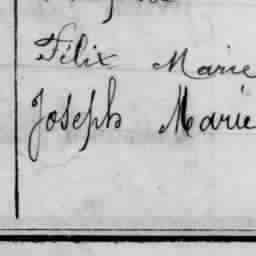 Félix Marie
Joseph Marie